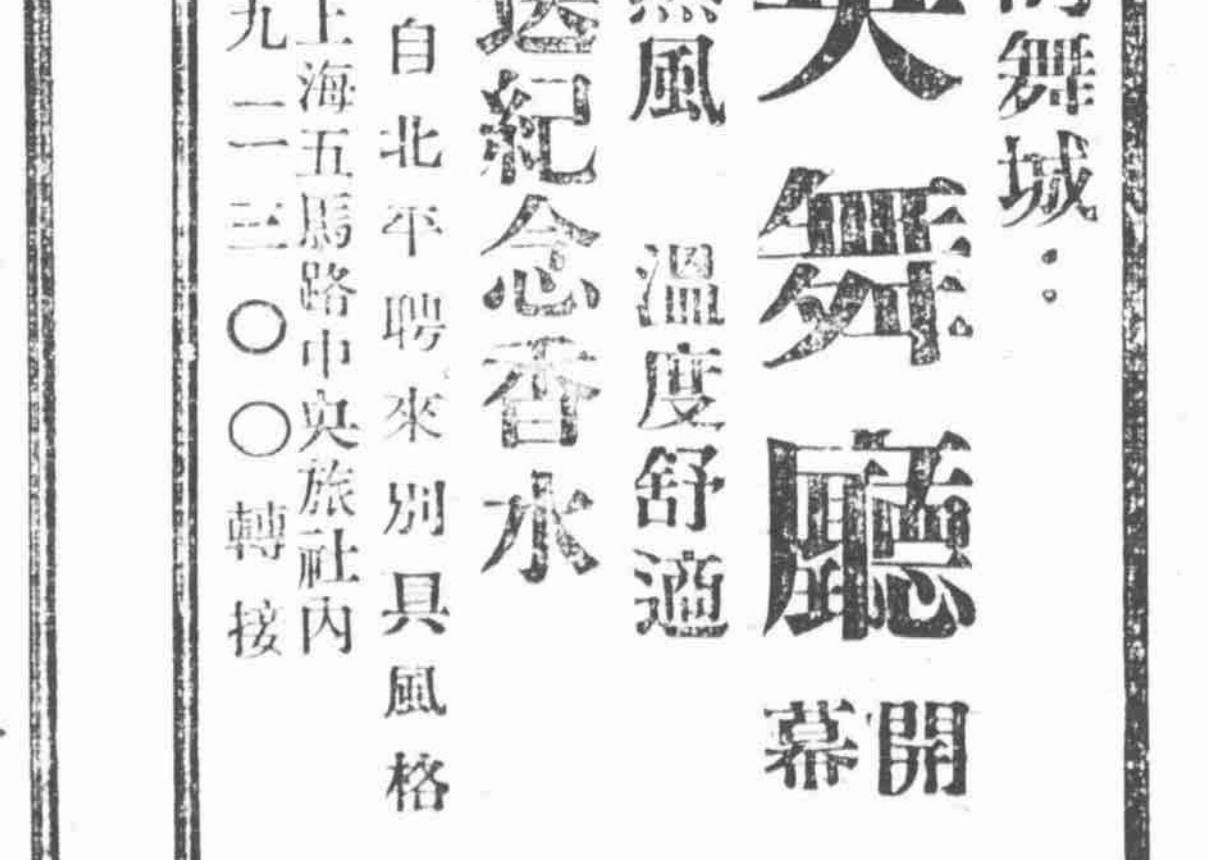 舞城：
央舞廳開幕
風 溫度舒適
送紀念香水
自北平聘來別具風格
上海五馬路中央旅社內
九二一三〇〇轉接